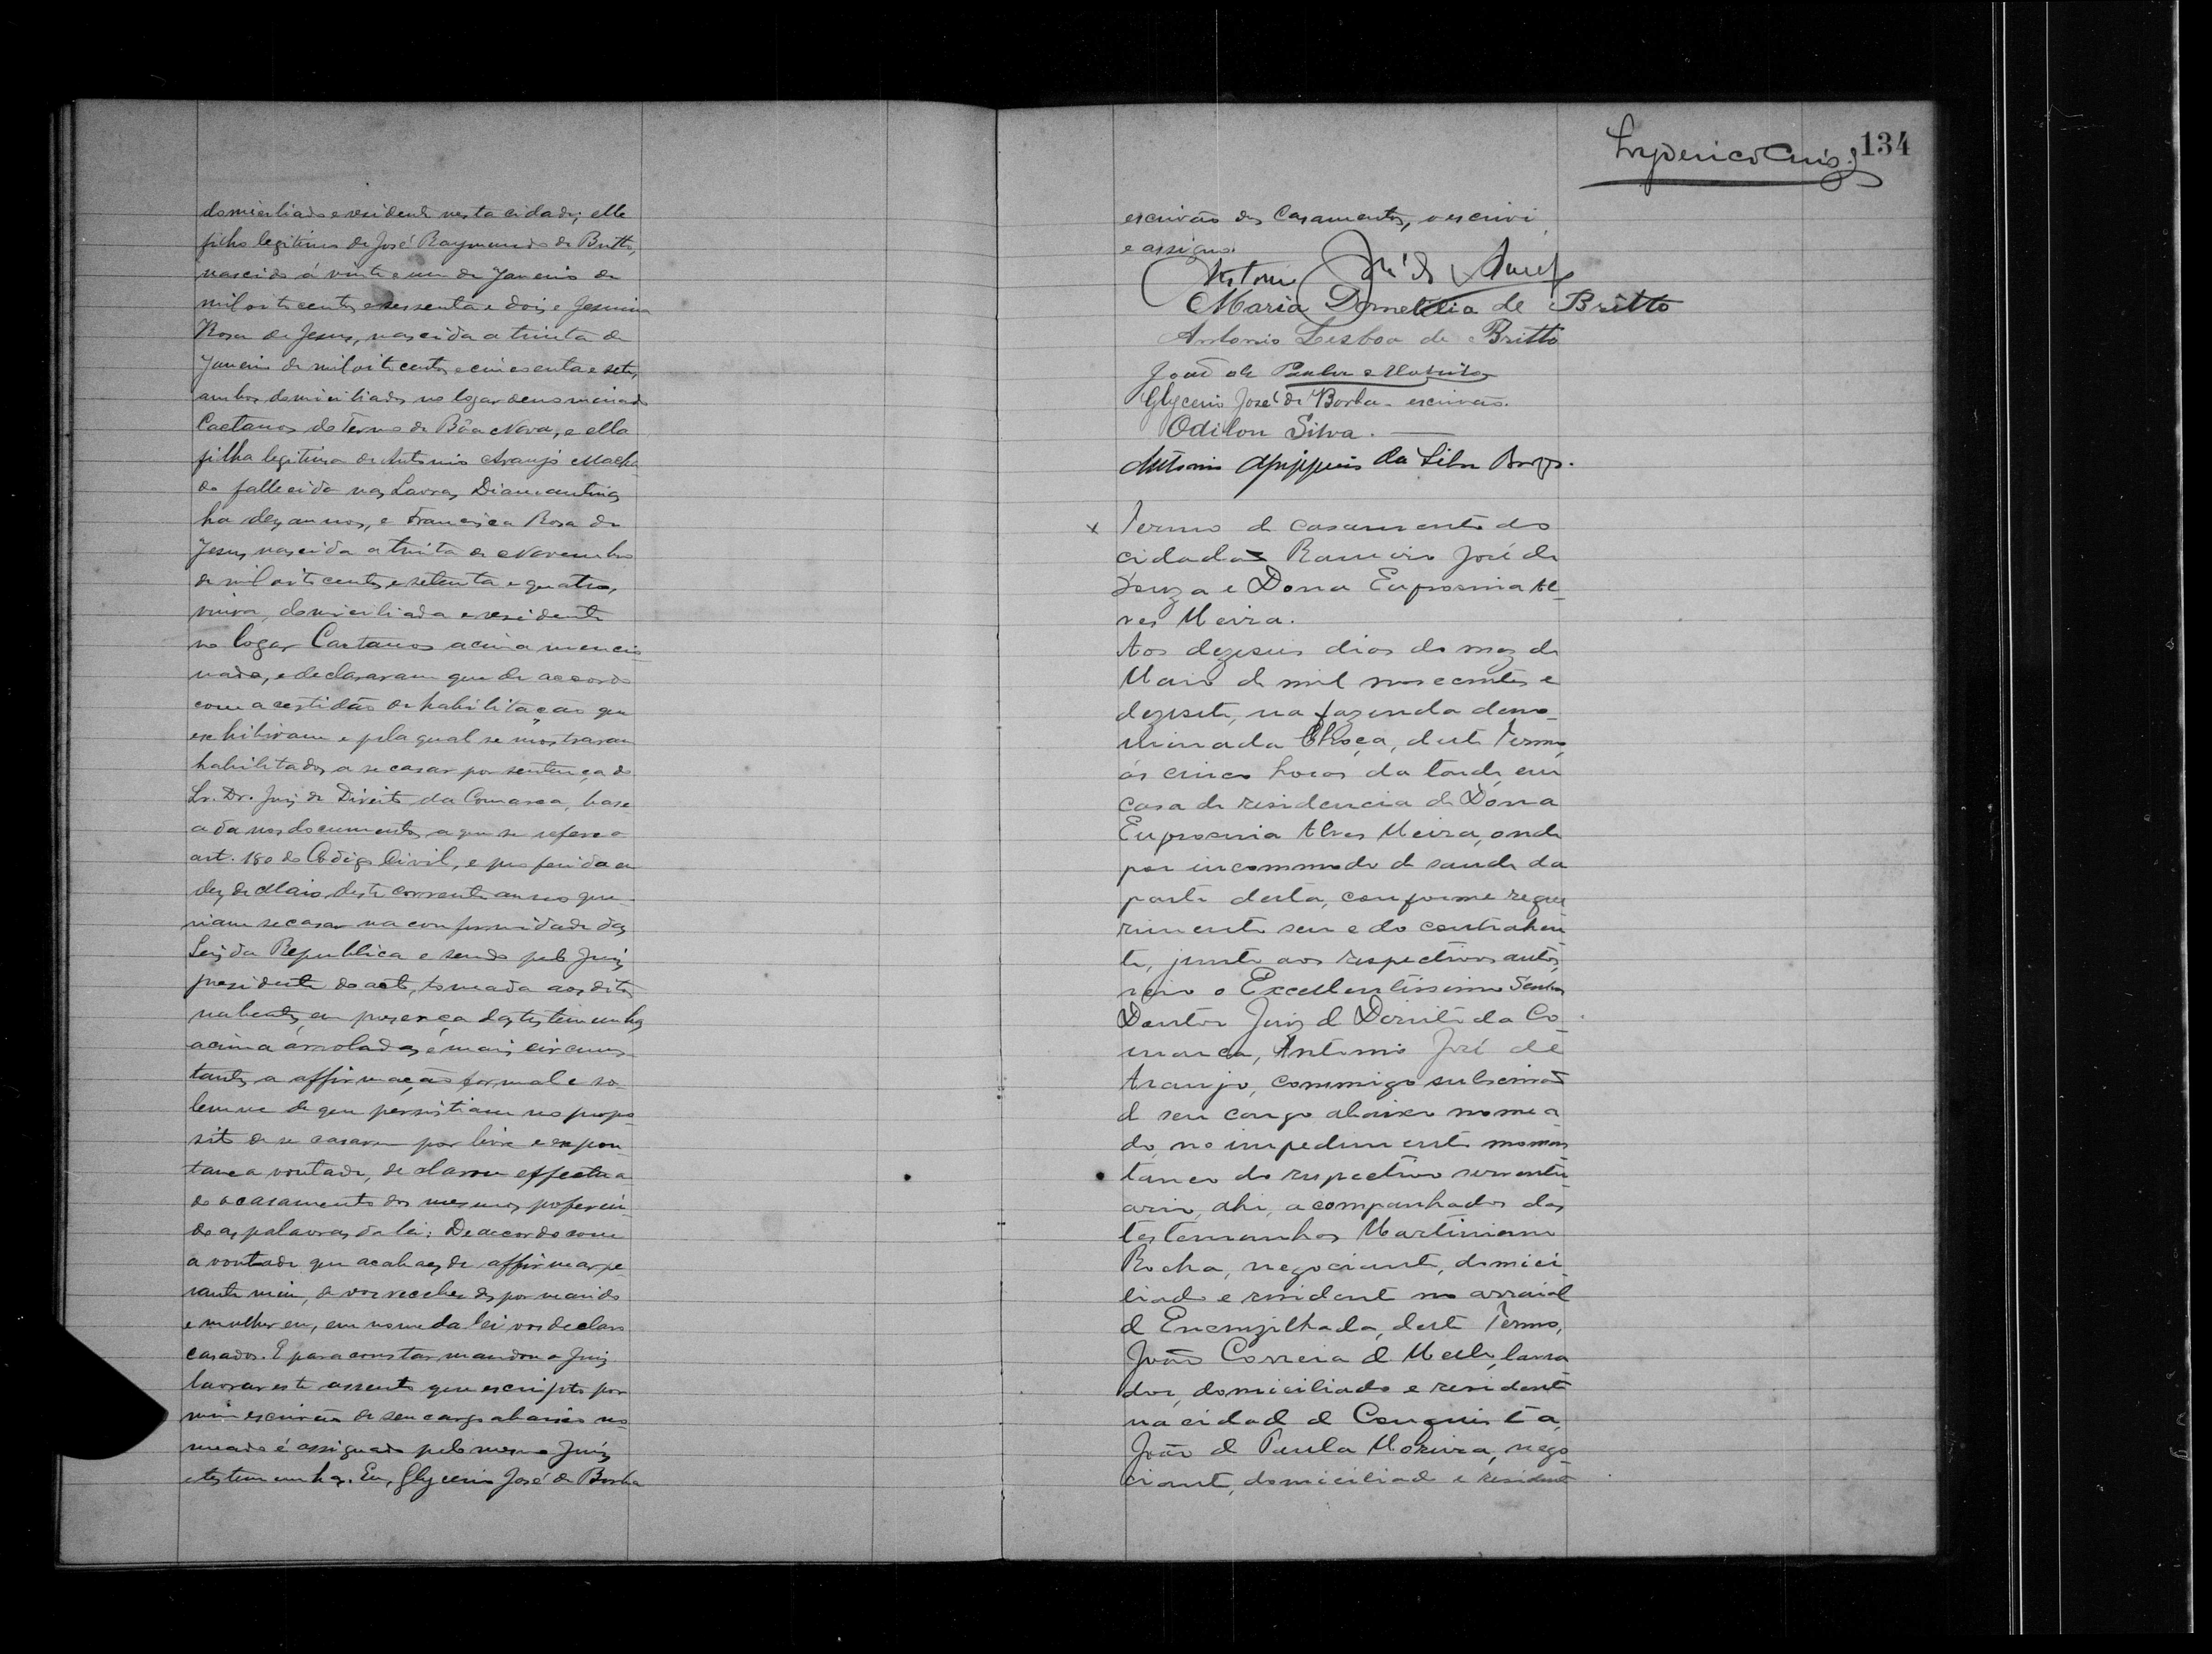 domiciliado e residente nesta cidade; elle
filho legitimo de José Raymundo de Britto,
nascido á vinte e um de Janeiro de
mil oitocentos e sessenta e dois e Jesuina
Rosa de Jesus, nascida a trinta de
Janeiro de mil oitocentos e cincoenta e sete,
ambos domiciliados no logar denominado
Caetanos do Termo de Bôa Nova, e ella
filha legitima de Antonio Araujo Macha
do fallecido nas Lavras Diamantinas
ha dez annos, e Francisca Rosa de
Jesus, nascida a trinta de Novembro
de mil oitocentos e setenta e quatro,
viuva, domiciliada e residente
no logar Caetanos acima mencio
nado, e declararam que de accordo
com a certidão de habilitação que
exhibiram e pela qual se mostraram
habilitados a se casar por sentença do
Sr. Dr. Juiz de Direito da Comarca, base
ada nos documentos a que se refere o
art. 180 do Codigo Civil, e proferida a
dez de Maio deste corrente anno que-
riam se casar na conformidade das
Leis da Republica e sendo pelo Juiz
presidente do acto, tomada aos ditos
nubentes, em presença das testemunhas
acima arroladas e mais circuns-
tantes a affirmação formal e so-
lemne de que persistiam no propo-
sito de se casarem por livre e expon-
tanea vontade, declarou effectua-
do o casamento dos mesmos, proferin-
do as palavras da lei: De accordo com
a vontade que acabaes de affirmar pe-
rante mim, de vos receberdes por marido
e mulher eu, em nome da lei vos declaro
casados. E para constar mandou o Juiz
lavrar este assento que escripto por
mim escrivão de seu cargo abaixo no-
meado é assignado pelo mesmo Juiz
e testemunhas. Eu, Glycerio José de Borba
134
escrivão dos Casamentos, o escrivi
e assigno.
Antonio José de
Maria Dometilia de Britto
Antonio Lisboa de Britto
João de Paula e
Glycerio José de Borba - escrivão.
Odilon Silva.
Antonio da Silva
x Termo de casamento do
cidadão Ramiro José de
Souza e Dona Euprosinia Al-
ves Meira.
Aos dezeseis dias do mez de
Maio de mil novecentos e
dezesete, na fazenda deno-
minada Choça, deste Termo,
ás cinco horas da tarde, em
casa de residencia de Dona
Euprosinia Alves Meira, onde
por incommodo de saude da
parte desta, conforme reque
rimento seu e do contrahen
te, junto aos respectivos autos,
veio o Excellentissimo Senhor
Doutor Juiz de Direito da Co-
marca, Antonio José de
Araujo, commigo subscrivão
de seu cargo abaixo nomea
do, no impedimento momen
taneo do respectivo serventu
ario, ahi, acompanhados das
testemunhas Martiniano
Rocha, negociante, domici
liado e residente no arraial
de Encruzilhada, deste Termo,
João Correia de Mello, lavra
dor, domiciliado e residente
na cidade de Conquista,
João de Paula Moreira, nego
ciante, domiciliado e residente